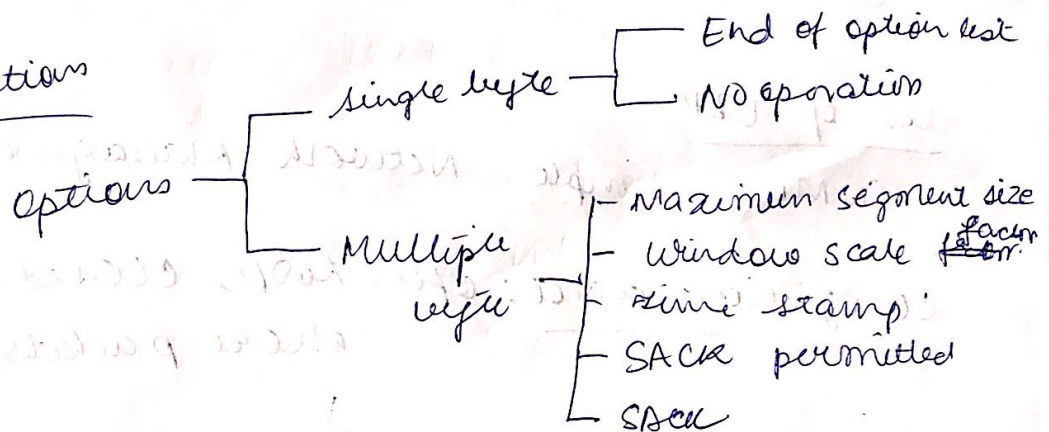 tions
options
single byte
End of option list
NO oporation
Multiple
byte
Maximum segment size
Window scale factor
time stamp
SACK permitted
SACK